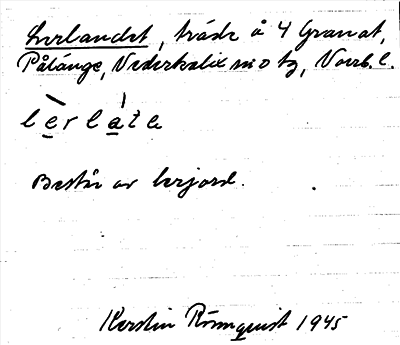 Lerlandet, träde å 4 Granat,
Pålänge, Nederkalix sn o tg, Norrb. l.
lerlate
Består av lerjord.
Kerstin Rönnquist 1945